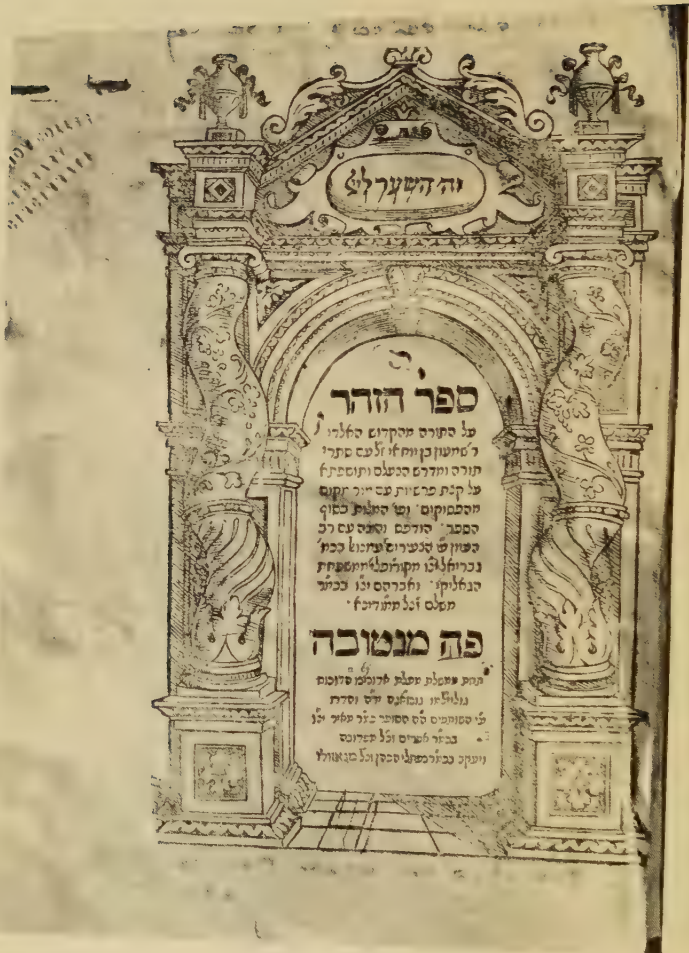 זה השער ליי
ספר הזהר
על התורה מהקדוש האלדי
ר' שמעון בן יוחאי ז"ל עם סתרי
תורה ומדרש הנעלם ותוספתא
על קצת פרשיות עם מקום
מהפסוקים וש' המלות בסוף
הספר הודפס והוגה עם רב
העיון ע"י הנעימים
ממשפחת
ואברהם יצ"ו בכמ"ר
משלם זצ"ל ממודינא
פה מנטובה
תחת ממשלת אדוננו הדוכוס
גוליילמו גונזאגה יר"ה וסדרו
ע"י השותפים ה"ה הסופר בכ"ר מאיר יצ"ו
בכ"ר אפרים זצ"ל מפדובה
ויעקב בכ"ר נפתלי הכהן זצ"ל מגאזולו